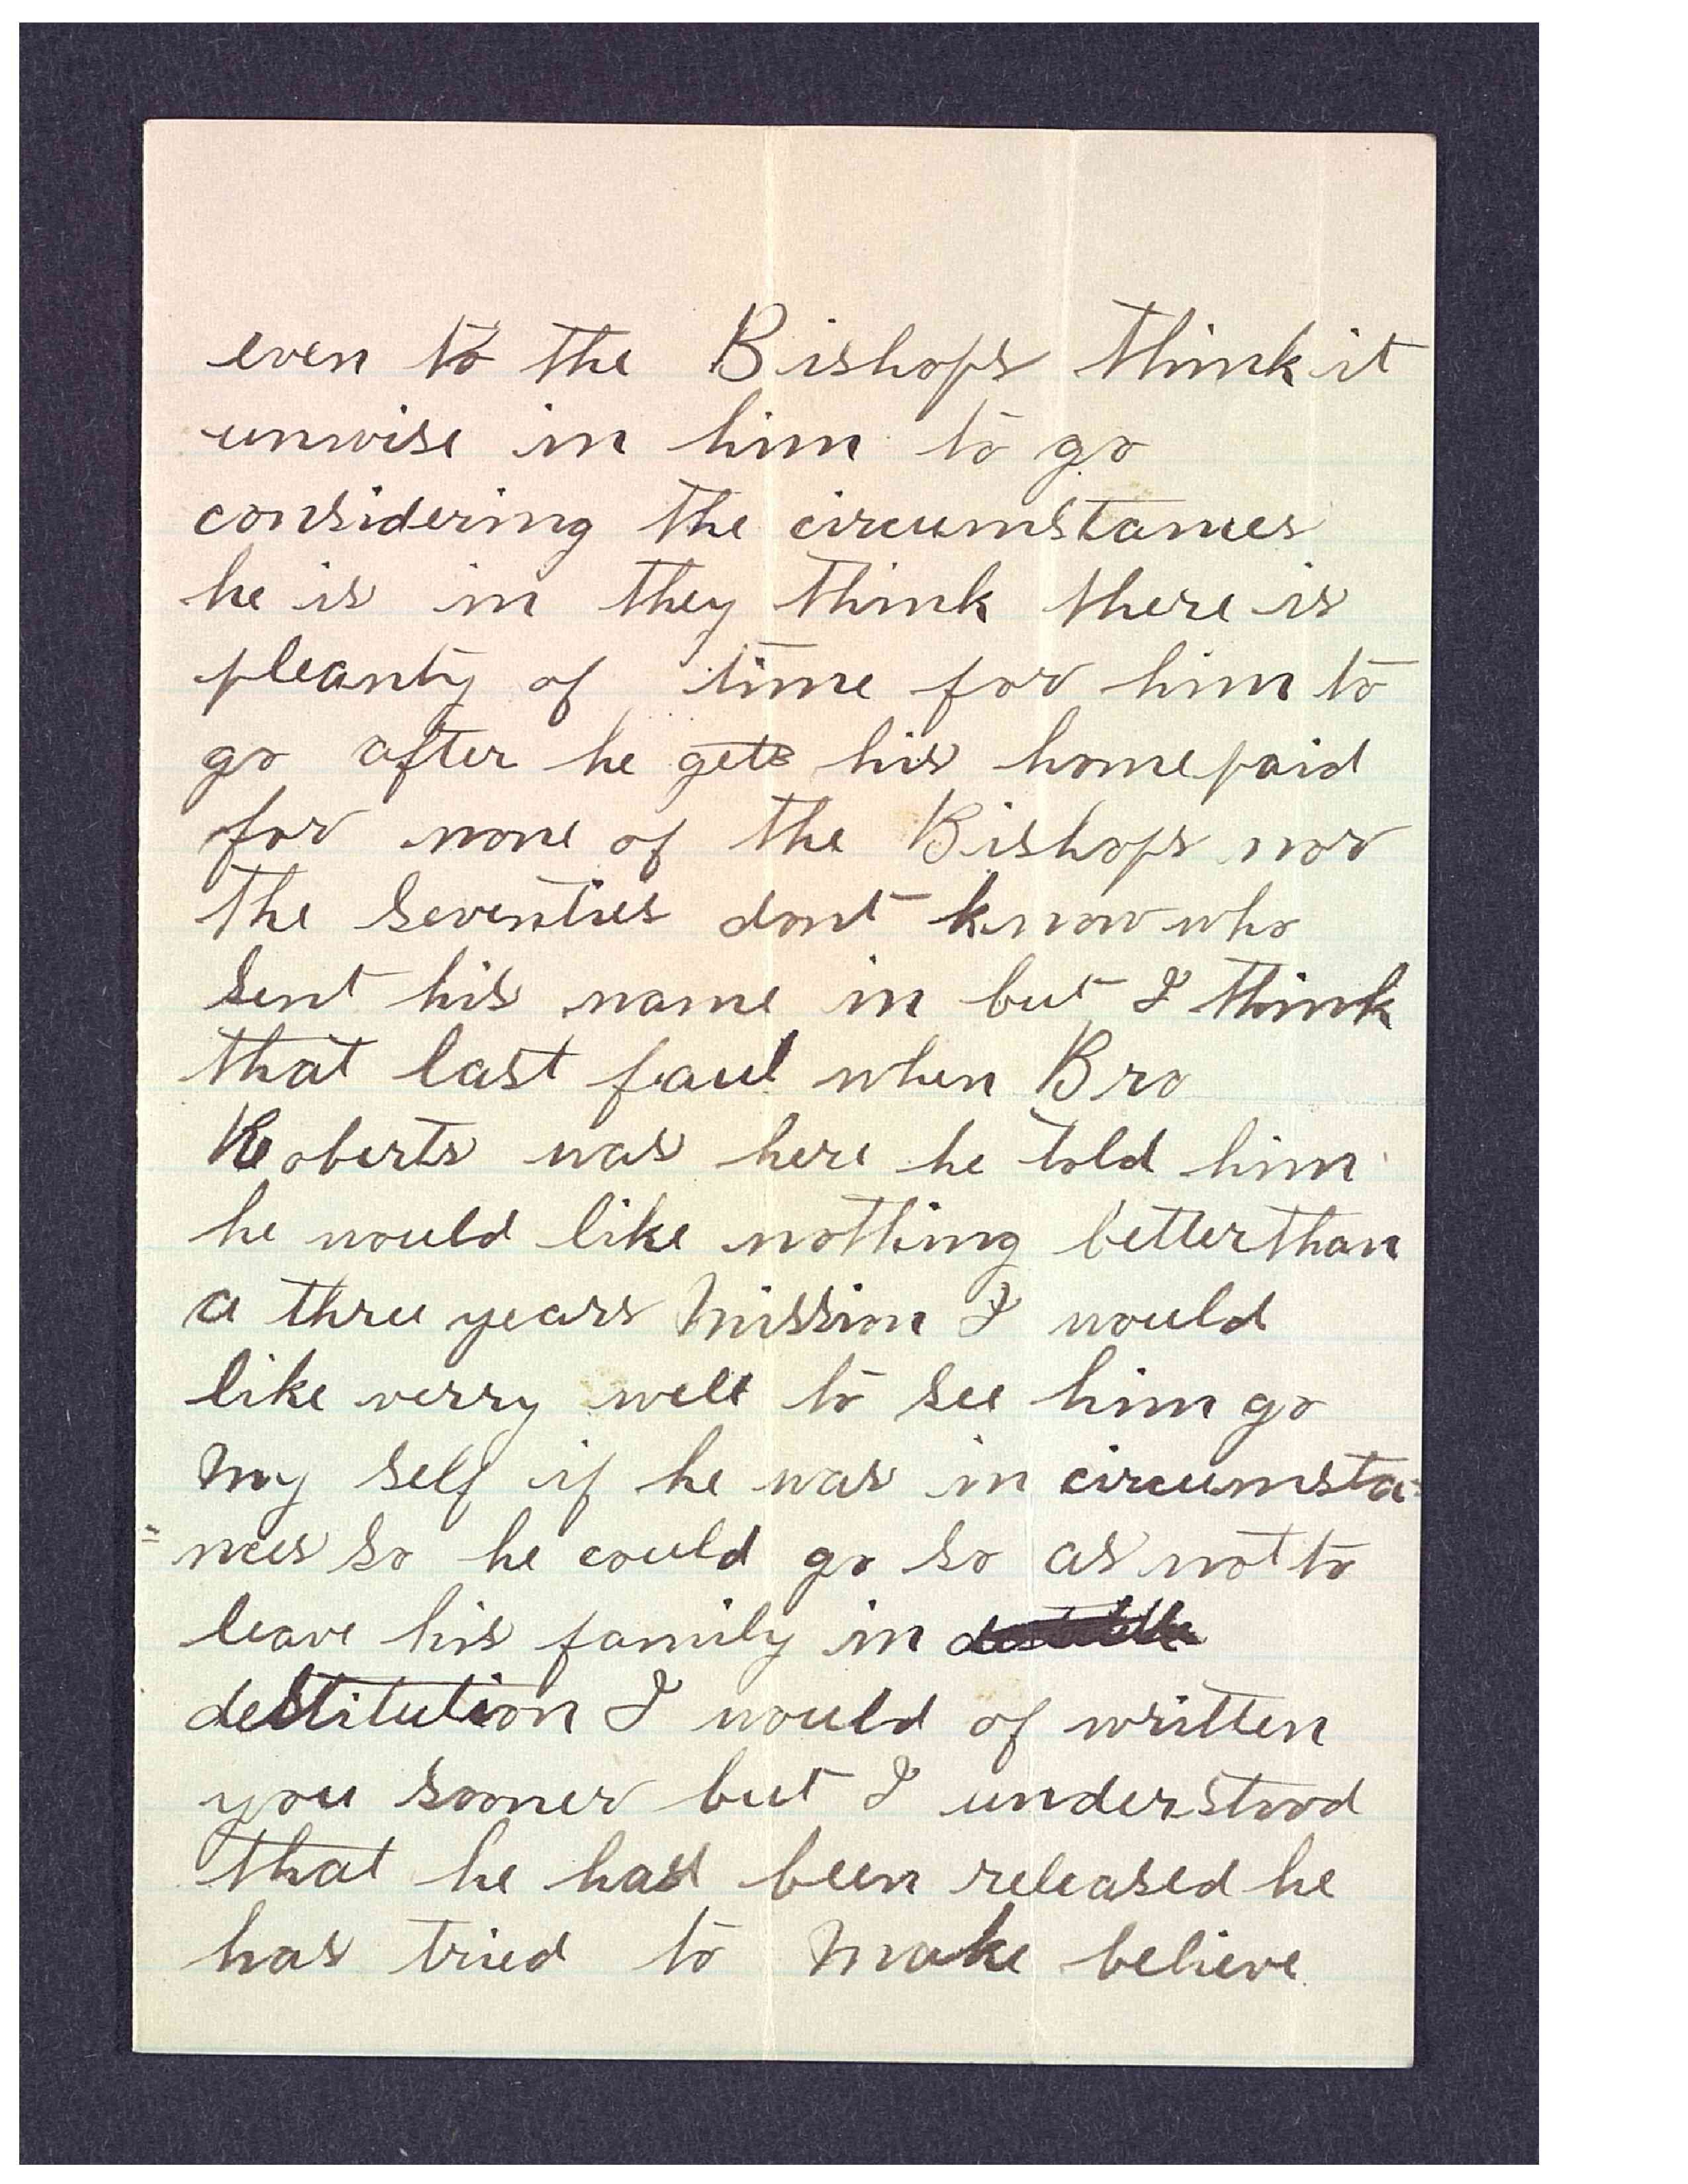 even to the Bishops think it
unwise in him to go
considering the circumstances
he is in they think there is
pleanty of time for him to
go after he gets his home paid
for none of the Bishops nor
the Seventies dont know who
sent his name in but I think
that last faul when Bro
Roberts was here he told him
he would like nothing better than
a three years Mission I would
like verry well to see him go
My self if he was in circumsta=
=nces so he could go so as not to
leave his family in
destitution I would of written
you sooner but I understood
that he had been released he
has tried to Make believe